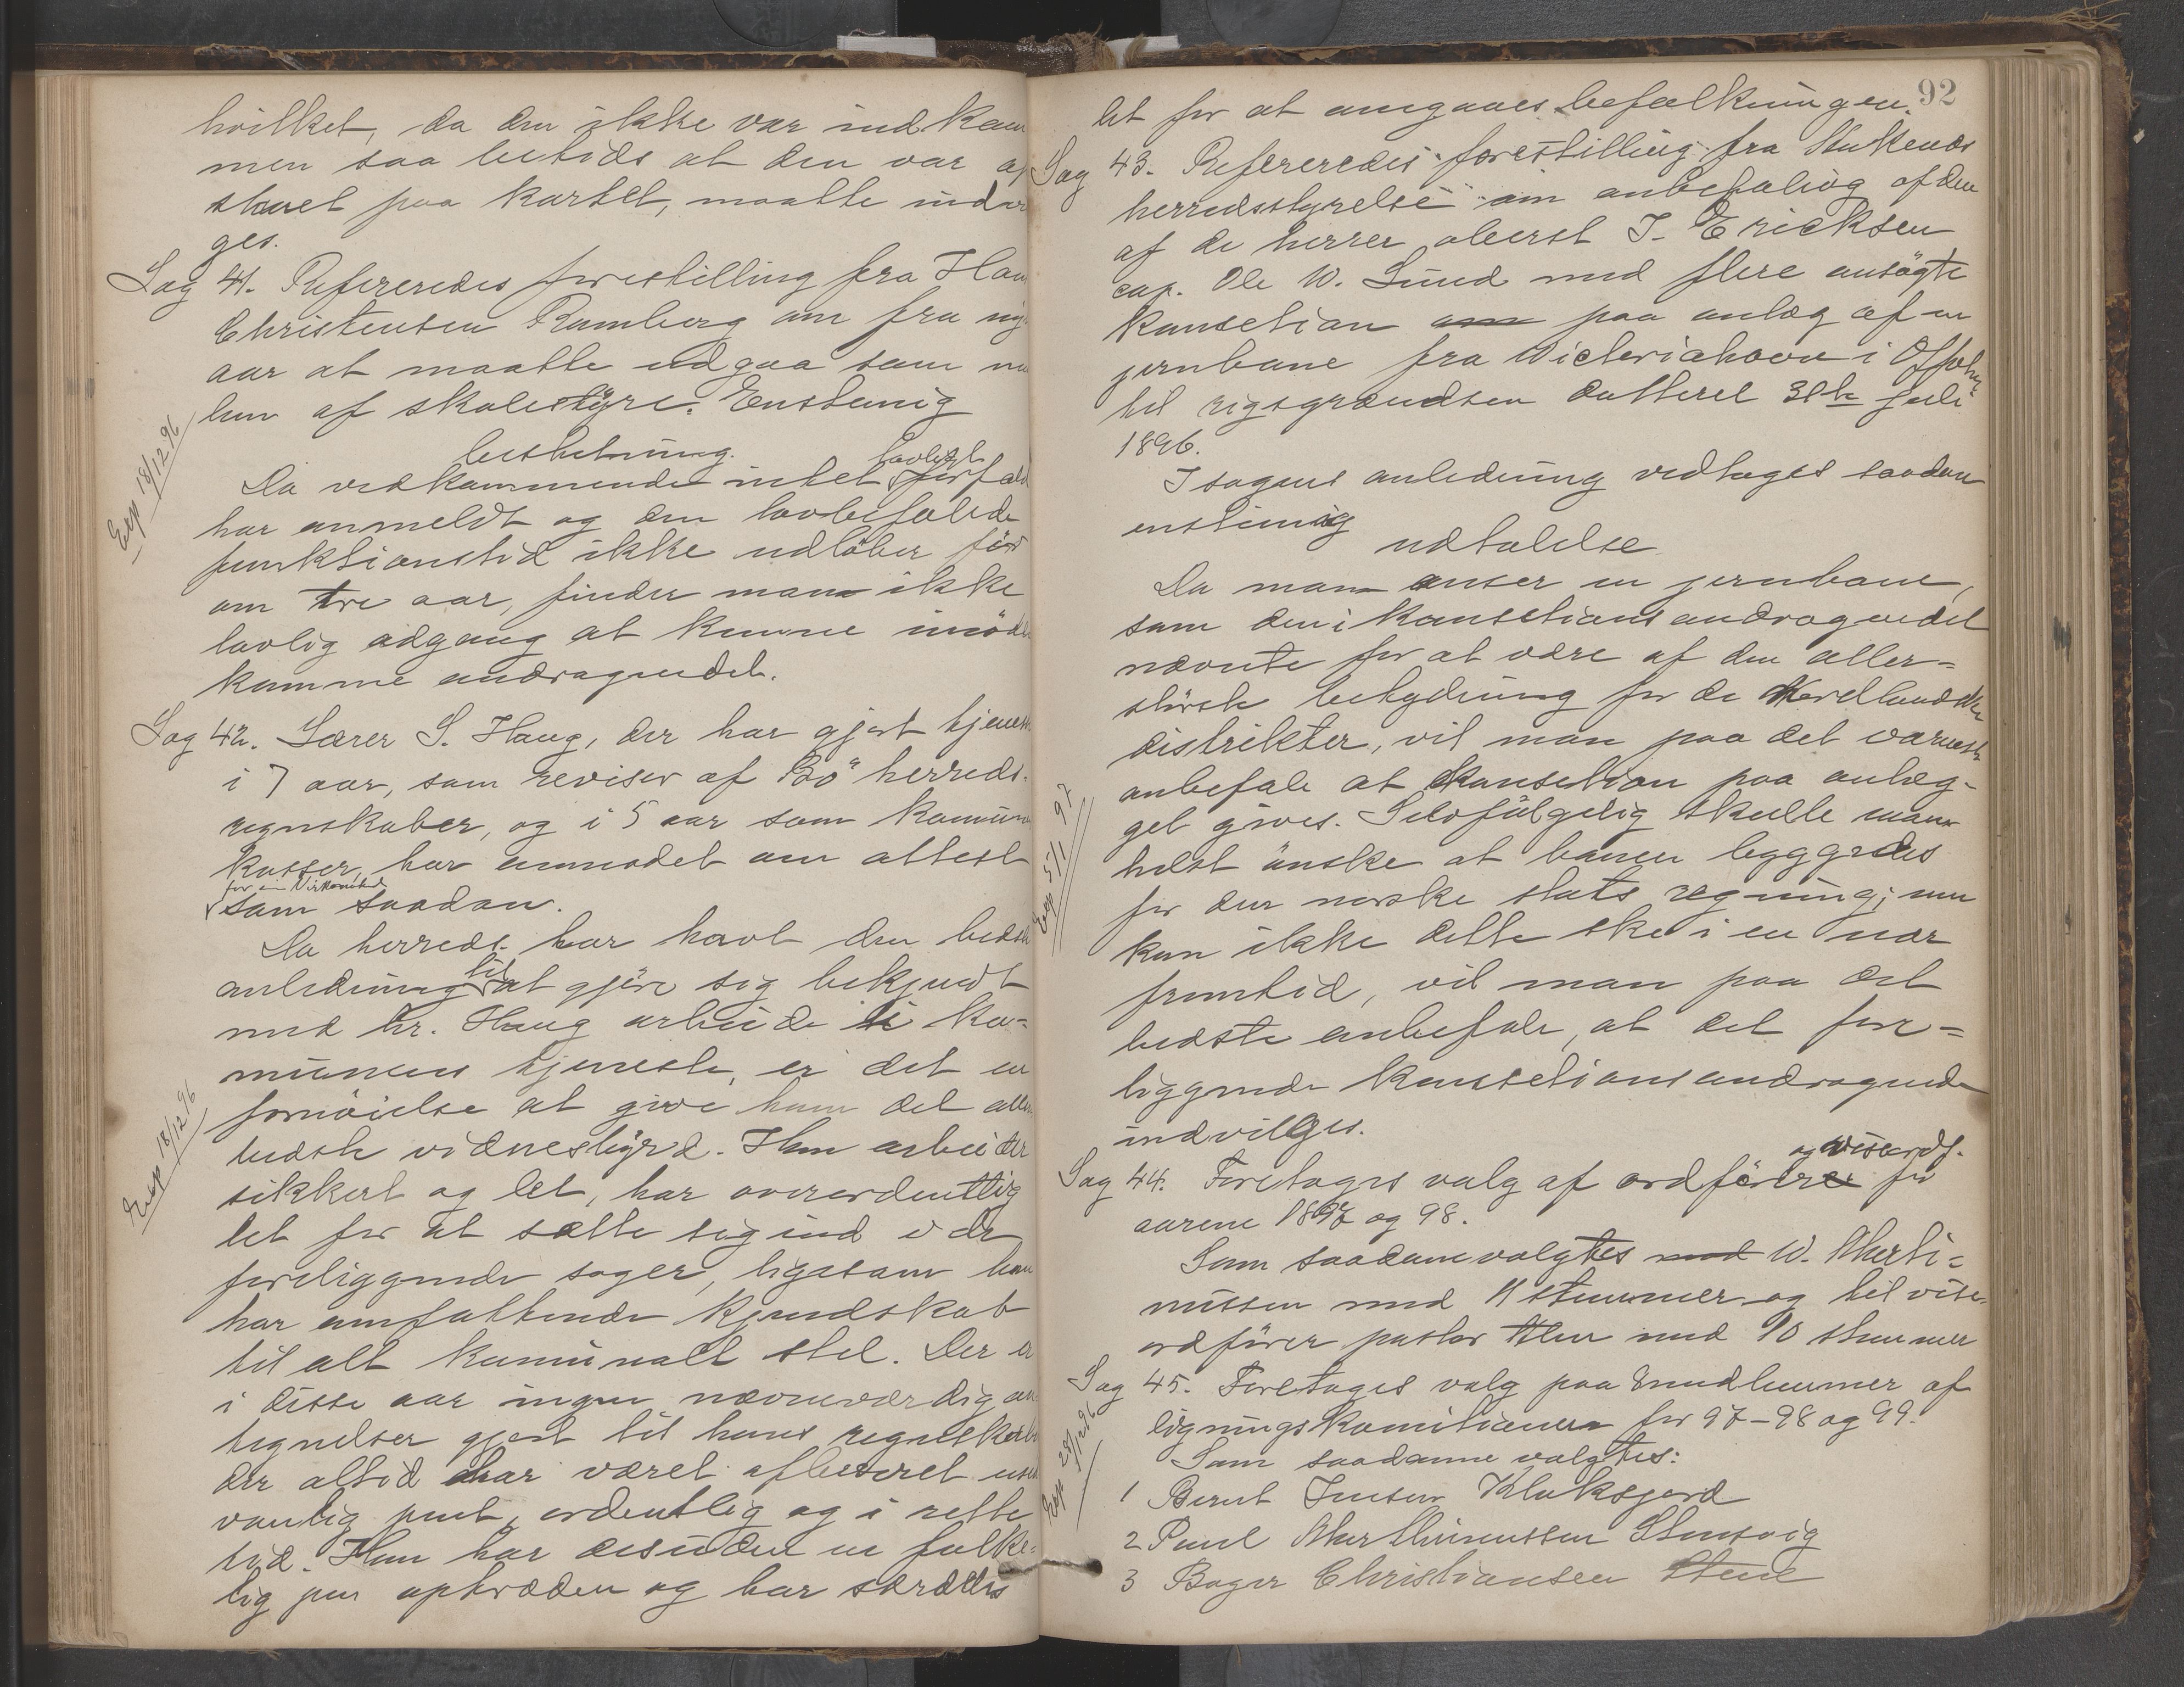 hvilket, da den ikke var indkom
men saa betids at den var op
slaaet paa kartet, maatte
ges.
Sag 41. Refereredes forestilling fra Han
Christensen Ramberg om fra nyt
aar at maatte udgaa som me
lem af skolestyre. Enstemig
beslutning.
lovligt
Da vedkommende intet forfald
har anmeldt og den lovbefalede
funktionstid ikke udløber før
om tre aar, finder man ikke
lovlig adgang at kunne imøde
komme andragendet.
Exp 18/12 96
Sag 42. Lærer S. Haug, der har gjort tjenest
i 7 aar, som revisor af Bø herreds-
regnskaber, og i 5 aar som kommun
kasser, har anmodet om attest
for sin Virksomhed
som saadan.
Da herredst. har havt den bedste
til
anledning at gjøre sig bekjendt
med hr. Haug arbeide i kom=
munens tjeneste, er det en
fornøielse at give ham det aller
bedste vidnesbyrd. Han arbeider
sikkert og let, har overordentlig
let for at sætte sig ind i de
foreliggende sager, ligesom han
har omfattende kjendskab
til alt kommunalt stel. Der er
i disse aar ingen nævneværdig an
tegnelser gjort til hans regnskaber
der altid har været afleveret usæd
vanlig pent, ordentlig og i rette
tid. Han har desuden en folke=
lig pen optræden og har særdeles
Exp 18/12 96
92
let for at omgaaes befolkningen.
Sag 43. Refereredes forestilling fra
herredsstyrelse om anbefaling af den
af de herrer oberst I. Ericksen
cap. Ole W. Lund med flere ansøgte
konsetion om paa anlæg af en
jernbane fra Victoriahavn i Ofoten
til rigsgrændsen datteret 31te juli
1896.
I sagens anledning vedtoges saadan
enstemig
udtalelse
Da man anser en jernbane,
som den i konsetions andragendet
nævnte for at være af den aller=
største betydning for de Nordlandske
distrikter, vil man paa det varmeste
anbefale at konsetion paa anlæg-
get gives. Selvfølgelig skulle man
helst ønske at banen byggedes
for den norske stats regning; men
kan ikke dette ske i en nær
fremtid, vil man paa det
bedste anbefale, at det fore=
liggende konsetionsandragende
indvilges.
Exp 5/1 97
og viseordf.
Sag 44. Foretoges valg af ordfører for
aarene 1897 og 98.
Som saadan valgtes med W. Marti=
nussen med 11 stemmer og til vise-
ordfører pastor med 10 stemmer
Sag 45. Foretoges valg paa medlemmer af
ligningskomitionen for 97-98 og 99.
Som saadanne valgtes:
1 Bernt Jensen Klaksjord
2 Paul Marthinussen Steensvig
3 Birger Christiansen Steine
Exp 28/12 96